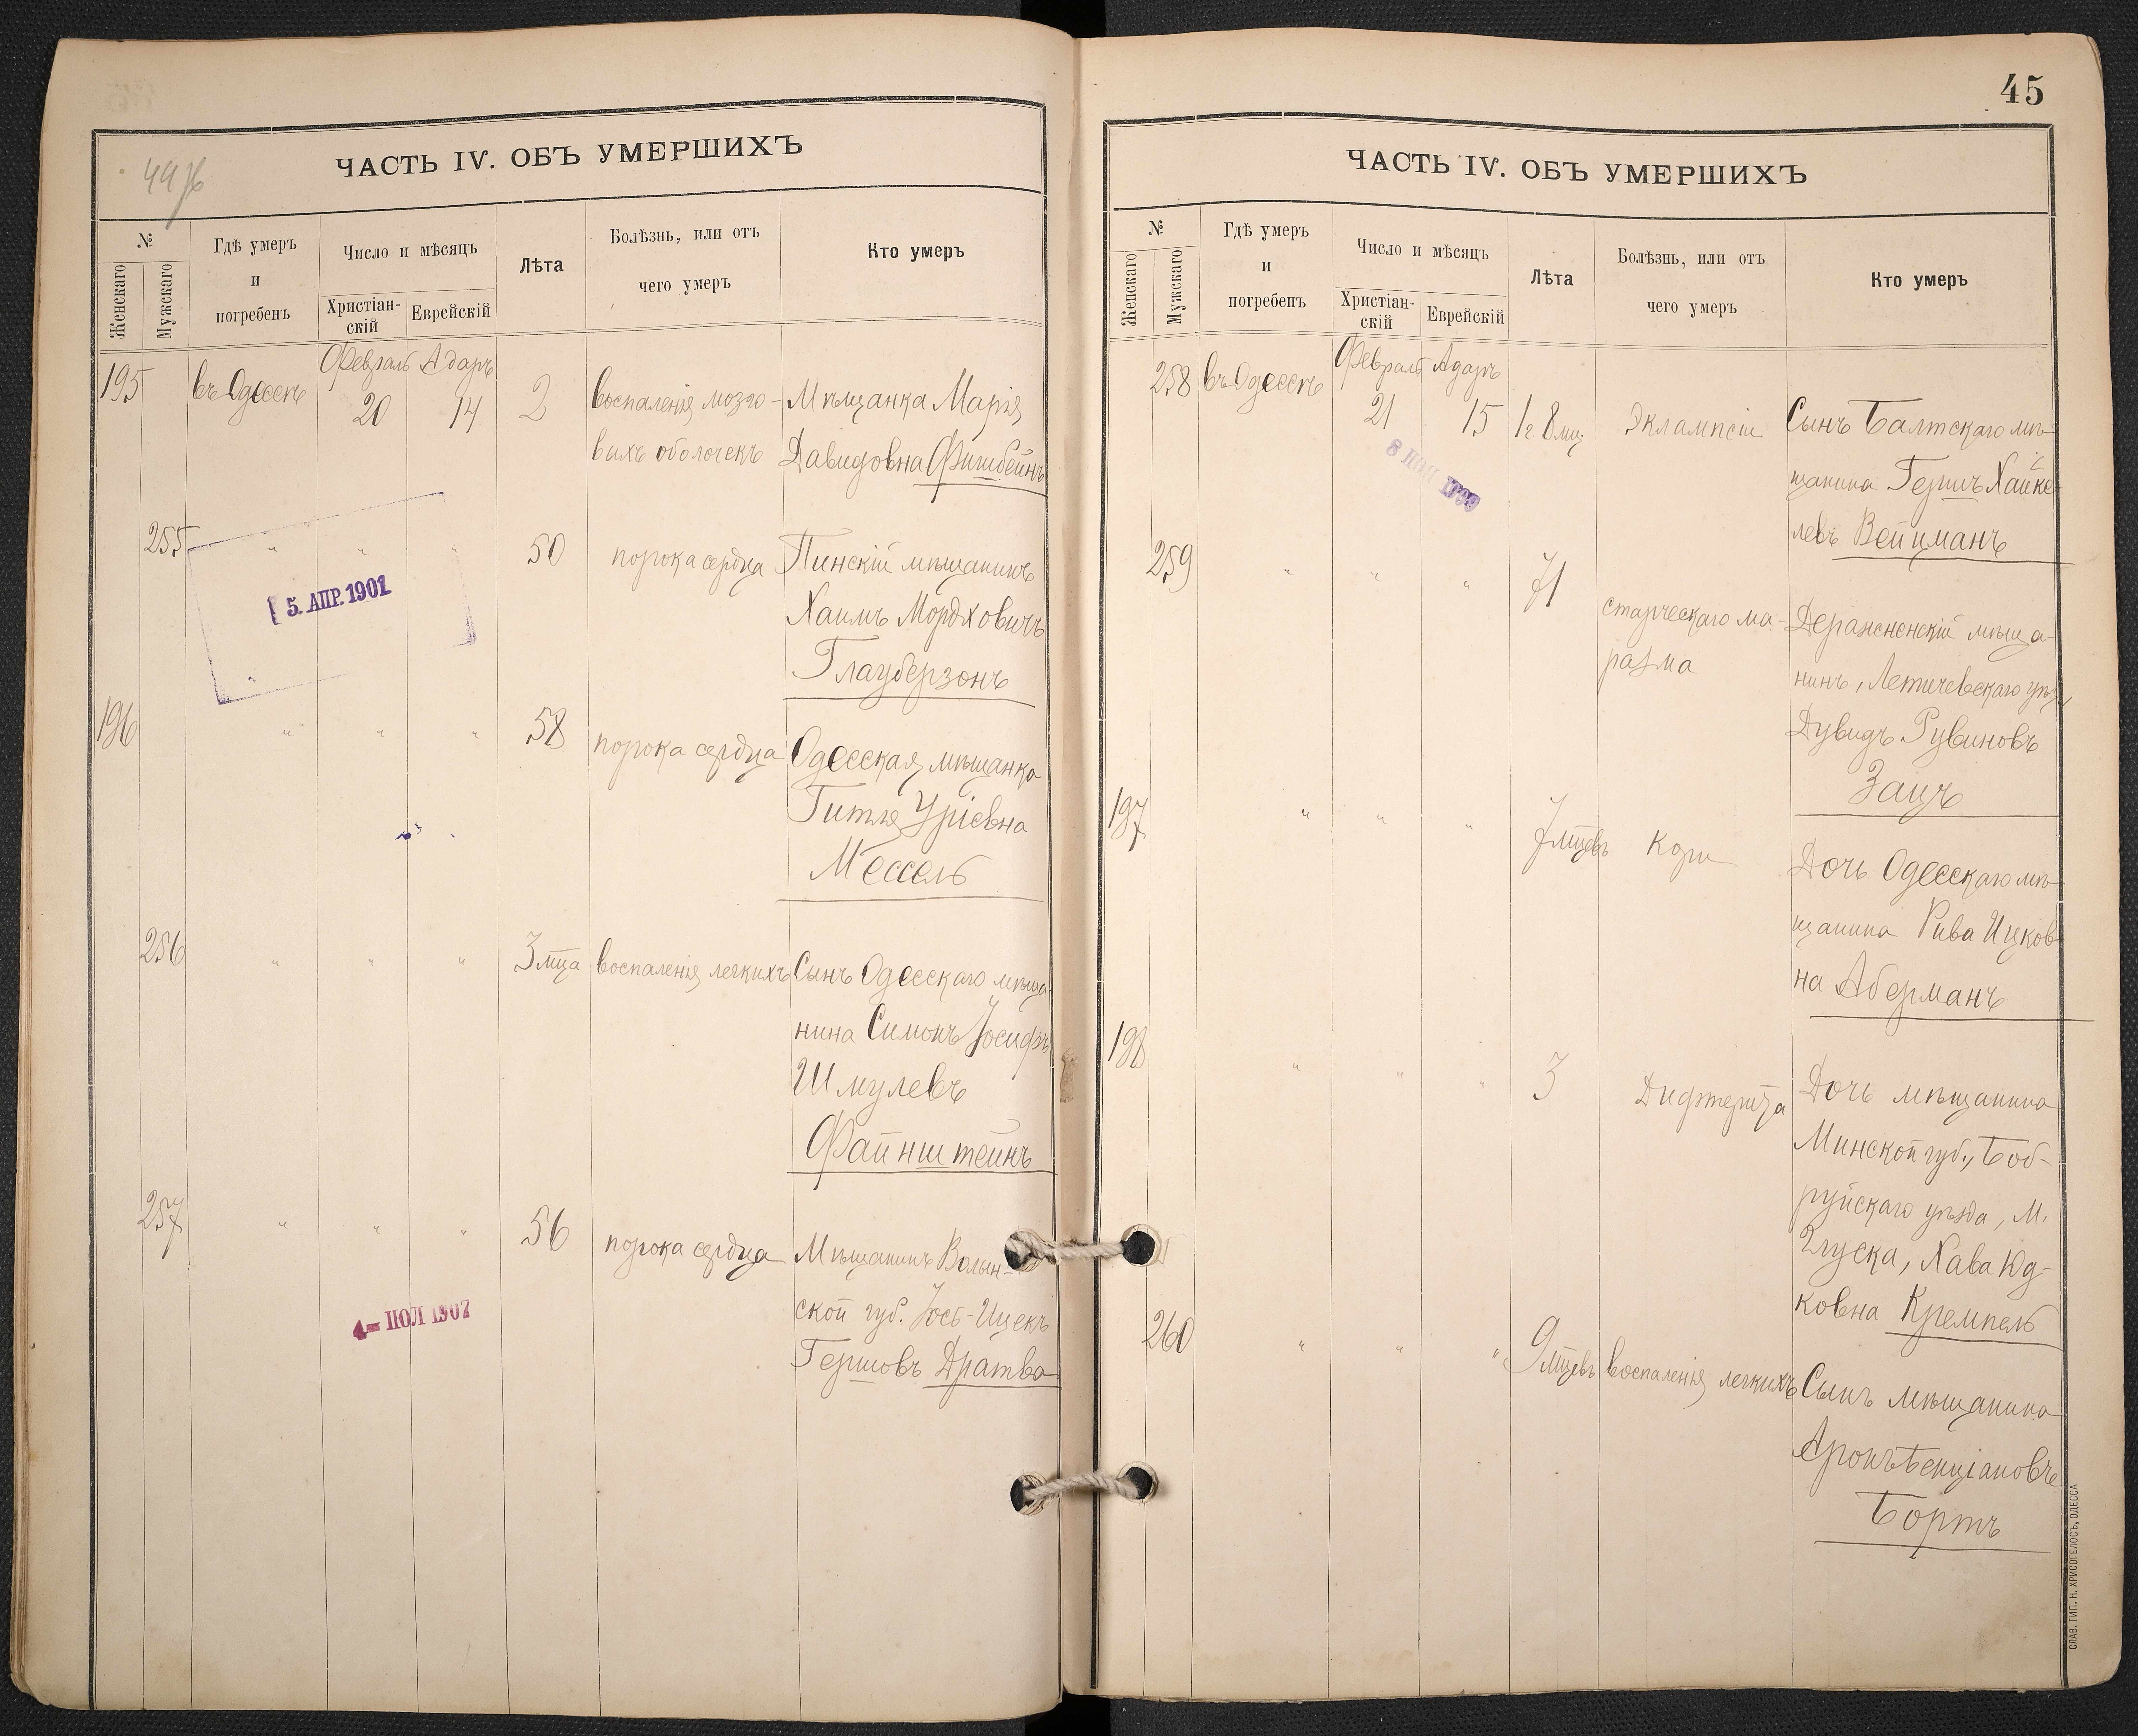 ЧАСТЬ IV. ОБЪ УМЕРШИХЪ
№
Женскаго
Мужскаго
Гдѣ умеръ
и
погребенъ
Число и мѣсяцъ
Христіан-
скій
Еврейскій
Лѣта
Болѣзнь, или отъ
чего умеръ
Кто умеръ
Февраль Адаръ
195 въ Одессѣ 20 14 2 воспаленія мозго- Мѣщанка Марія
выхъ оболочекъ Давидовна Фишбейнъ
255 " " " 50 порока сердца Пинскій мѣщанинъ
5. АПР. 1901
Хаимъ Мордховичъ
Глауберзонъ
196 " " " 58 порока сердца Одесская мѣщанка
Гитля Уріевна
Мессель
256 " " " 3 мца воспаленія легкихъ Сынъ Одесскаго мѣща-
нина Симонъ Іосифъ
Шмулевъ
Файнштейнъ
257 " " " 56 порока сердца Мѣщанинъ Волын-
ской губ. Іось-Ицекъ
4- ІЮЛ 1907
Гершовъ Дратва
45
ЧАСТЬ IV. ОБЪ УМЕРШИХЪ
№
Женскаго
Мужскаго
Гдѣ умеръ
и
погребенъ
Число и мѣсяцъ
Христіан-
скій
Еврейскій
Лѣта
Болѣзнь, или отъ
чего умеръ
Кто умеръ
Февраль Адаръ
258 въ Одессѣ 21 15 1 г. 8 мц. Эклампсіи Сынъ Балтскаго мѣ-
щанина Гершъ Хайке-
левъ Вейцманъ
259 " " " 71 старческаго ма- Деражненскій мѣща-
разма нинъ, Летичевскаго уѣз,
Дувидъ Рувиновъ
Зацъ
197 " " " 7 мцевъ Кори Дочь Одесскаго мѣ-
щанина Рива Ицков-
на Аберманъ
198 " " " 3 Дифтерита Дочь мѣщанина
Минской губ., Боб-
руйскаго уѣзда, м.
Глуска, Хава Юд-
ковна Кремпель
260 " " " 9 мцевъ воспаленія легкихъ Сынъ мѣщанина
Аронъ Бенціановъ
Бортъ
СЛАВ. ТИП. Н. ХРИСОГЕЛОСЪ, ОДЕССА